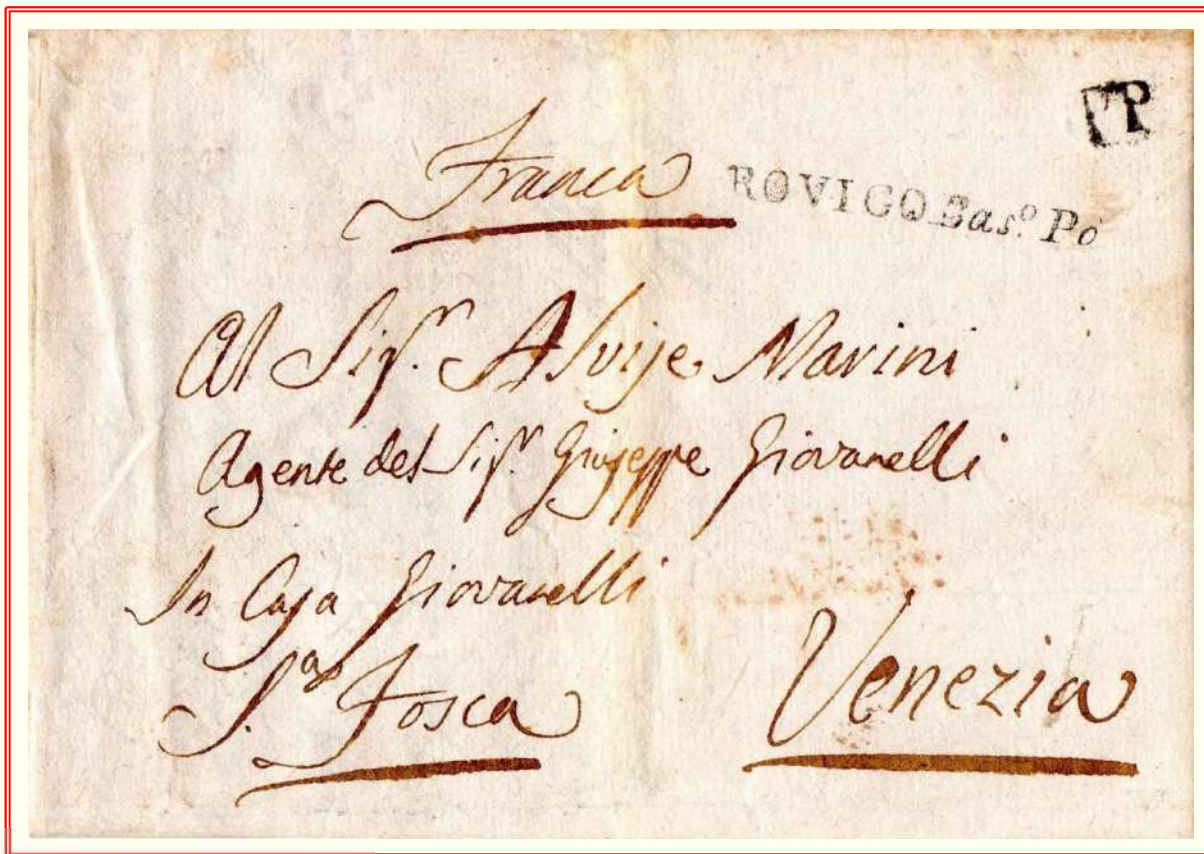 PP
Franca
ROVIGO Bas.º Po
Al Sigr. Alvise Marini
Agente del Sigr. Giuseppe Giovanelli
In Casa Giovanelli
S.ta Fosca
Venezia